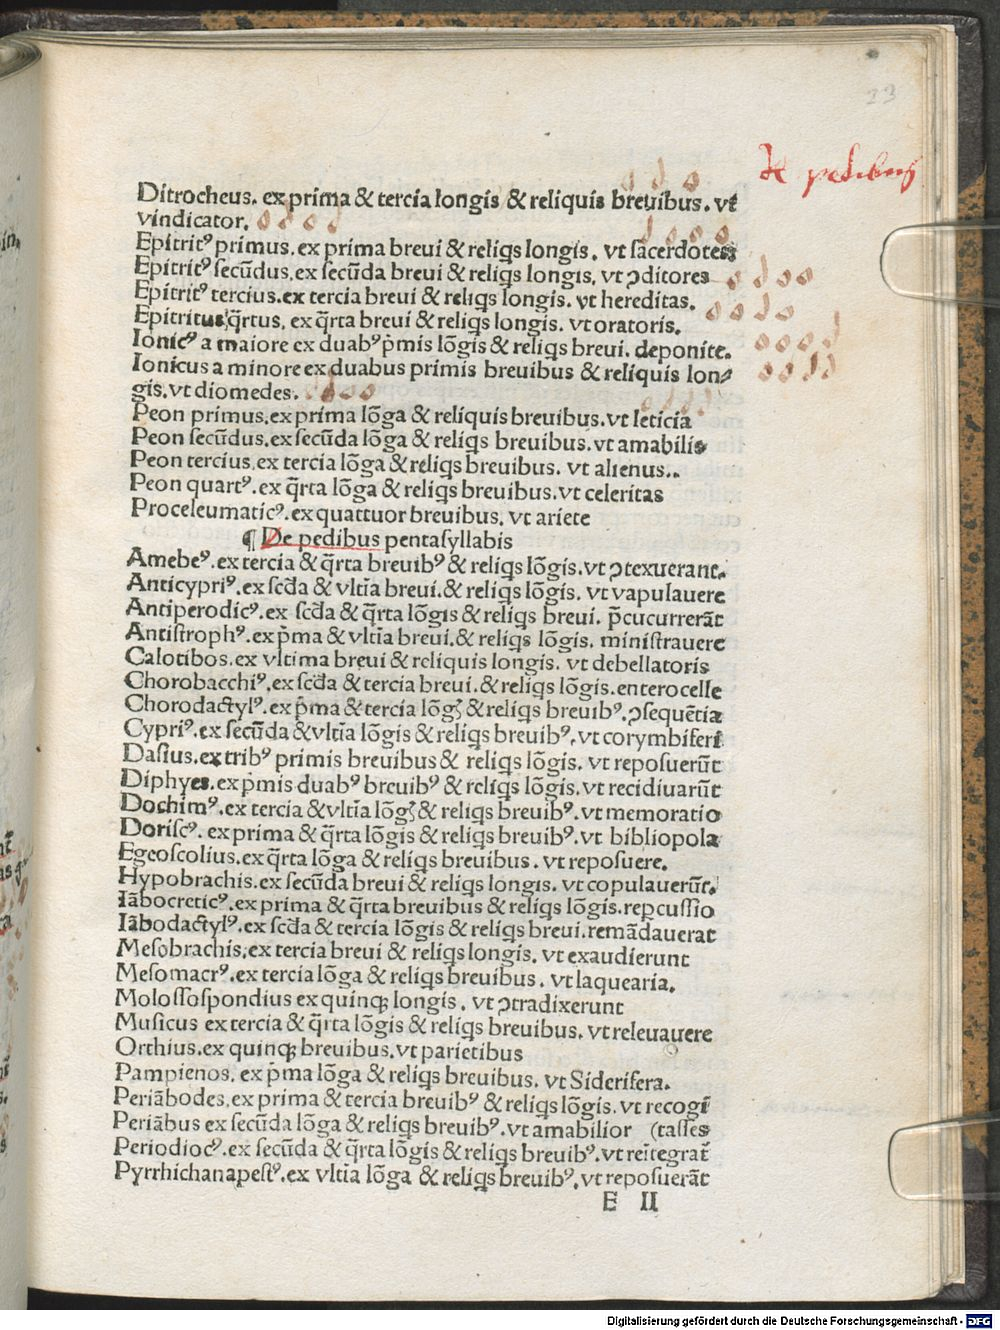 23
De pedibus
Ditrocheus. ex prima & tercia longis & reliquis breuibus. vt
vindicator.
Epiritꝰ primus. ex prima breui & reliqs longis. vt sacerdotes
Epitritꝰ secūdus. ex secūda breui & reliqs longis. vt ꝯditores
Epitritꝰ tercius. ex tercia breui & reliqs longis. vt hereditas.
Epitritus q̄rtus. ex q̄rta breui & reliqs longis. vt oratoris.
Ionicꝰ a maiore ex duabꝰ p̄mis lōgis & reliqs breui. deponite.
Ionicus a minore ex duabus primis breuibus & reliquis lon⸗
gis. vt diomedes.
Peon primus. ex prima lōga & reliquis breuibus. vt leticia
Peon secūdus. ex secūda lōga & reliqs breuibus. vt amabilis
Peon tercius. ex tercia lōga & reliqs breuibus. vt alienus..
Peon quartꝰ. ex q̄rta lōga & reliqs breuibus. vt celeritas
Proceleumaticꝰ. ex quattuor breuibus. vt ariete
¶ De pedibus pentasyllabis
Amebeꝰ. ex tercia & q̄rta breuibꝰ & reliqs lōgis. vt ꝯtexuerant.
Anticypriꝰ. ex scd̄a & vltīa breui. & reliqs lōgis. vt vapulauere
Antiperodicꝰ. ex scd̄a & q̄rta lōgis & reliqs breui. p̄cucurrerāt
Antistrophꝰ. ex p̄ma & vltīa breui. & reliqs lōgis. ministrauere
Calotibos. ex vltima breui & reliquis longis. vt debellatoris
Chorobacchiꝰ. ex scd̄a & tercia breui. & reliqs lōgis. enterocelle
Chorodactylꝰ. ex p̄ma & tercia lōgꝭ & reliqs breuibꝰ. ꝯsequētia
Cypriꝰ. ex secūda & vltīa lōgis & reliqs breuibꝰ. vt corymbiferi
Dasius. ex tribꝰ primis breuibus & reliqs lōgis. vt reposuerūt
Diphyes. ex p̄mis duabꝰ breuibꝰ & reliqs lōgis. vt recidiuarūt
Dochimꝰ. ex tercia & vltīa lōgꝭ & reliqs breuibꝰ. vt memoratio
Doriscꝰ. ex prima & q̄rta lōgis & reliqs breuibꝰ. vt bibliopola
Egeoscolius. ex q̄rta lōga & reliqs breuibus. vt reposuere.
Hypobrachis. ex secūda breui & reliqs longis. vt copulauerūt.
Iābocreticꝰ. ex prima & q̄rta breuibus & reliqs lōgis. repcussio
Iābodactylꝰ. ex scd̄a & tercia lōgis & reliqs breui. remādauerat
Mesobrachis. ex tercia breui & reliqs longis. vt exaudierunt
Mesomacrꝰ. ex tercia lōga & reliqs breuibus. vt laquearia.
Molossospondius ex quinqꝫ longis. vt ꝯtradixerunt
Musicus ex tercia & q̄rta lōgis & reliqs breuibus. vt releuauere
Orthius. ex quinqꝫ breuibus. vt parietibus
Pampienos. ex p̄ma lōga & reliqs breuibus. vt Siderifera.
Periābodes. ex prima & tercia breuibꝰ & reliqs lōgis. vt recogī
Periābus ex secūda lōga & reliqs breuibꝰ. vt amabilior (tasses
Periodiocꝰ. ex secūda & q̄rta lōgis & reliqs breuibꝰ. vt reitegrat̄
Pyrrhichanapestꝰ. ex vltīa lōga & reliqs breuibꝰ. vt reposuerāt
E II
Digitalisierung gefördert durch die Deutsche Forschungsgemeinschaft - DFG